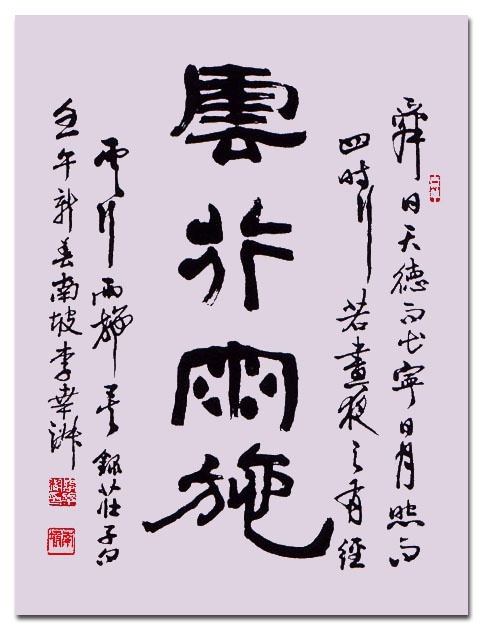 舜曰天德而出寧日月照而
四時行若晝夜之有經
雲行雨施
雲行雨施矣錄莊子句
壬午新春南坡李